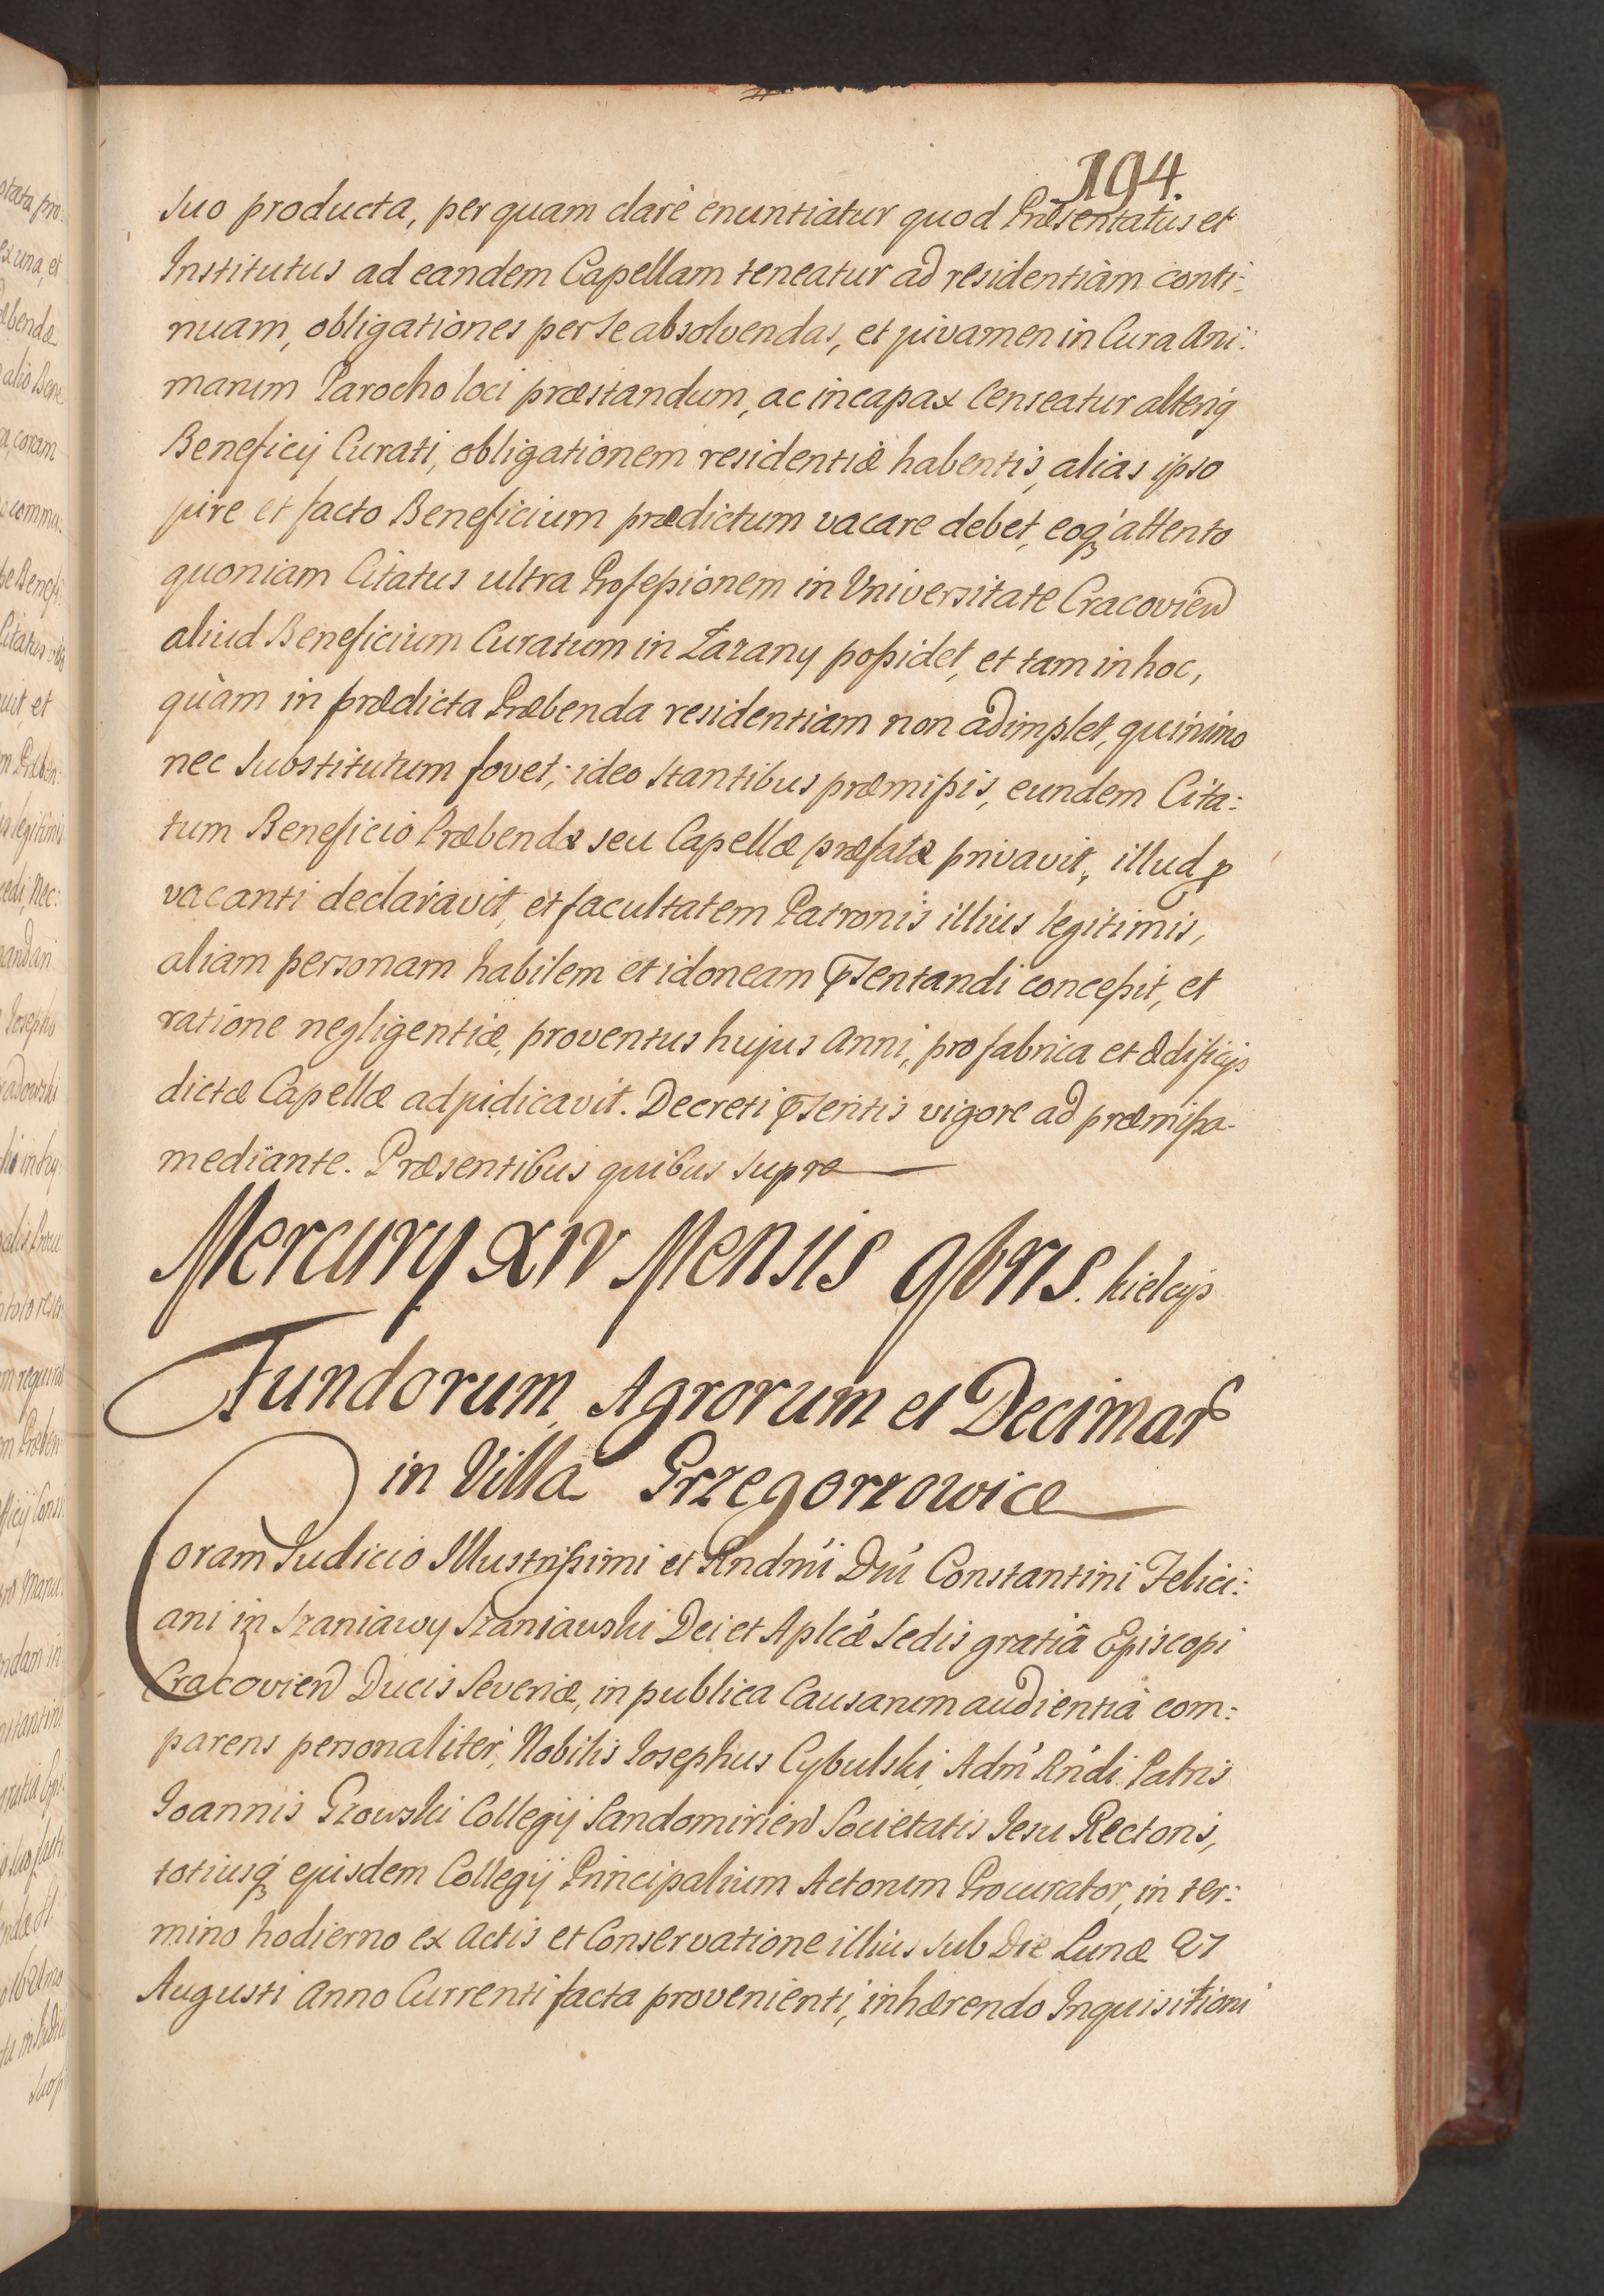 194.
suo producta, per quam clarè enuntiatur quod Præsentatus et
Institutus ad eandem Capellam teneatur ad residentiam conti:
nuam, obligationes per se absolvendas, et juvamen in Cura Ani:
marum Parocho loci præstandum, ac incapax Censeatur alteriq
Beneficij Curati, obligationem residentiæ habentis, alias ipso
jure et facto Beneficium prædictum vacare debet, eoqꝫ attento
quoniam Citatus ultra Professionem in Universitate Cracovien
aliud Beneficium Curatum in Żarany possidet, et tam in hoc,
quàm in prædicta Præbenda residentiam non adimplet, quinimo
nec Substitutum fovet; ideo stantibus præmissis, eundem Cita:
tum Beneficio Præbendæ seu Capellæ præfatæ privavit, illud p
vacanti declaravit, et facultatem Patronis illius legitimis,
aliam personam habilem et idoneam pſentandi concessit, et
ratione negligentiæ, proventus hujus Anni, pro fabrica et ædificijs
dictæ Capellæ adjudicavit. Decreti pſentis vigore ad præmissa
mediante. Præsentibus quibus supra
Mercurij XIV Mensis 9bris. Kielcijs
Fundorum, Agrorum et Decimar
in Villa Grzegorzowice
Coram Judicio Illustrissimi et Rndmi Dni Constantini Felici:
ani in Szaniawy Szaniawski Dei et Aplcæ Sedis gratiâ Episcopi
Cracovien Ducis Severiæ, in publica Causarum audientia com:
parens personaliter, Nobilis Josephus Cybulski, Adm Rndi Patris
Joannis Gzowski Collegij Sandomirien Societatis Jesu Rectoris,
totiusqꝫ ejusdem Collegij Principalium Actorum Procurator, in ter:
mino hodierno ex Actis et Conservatione illius sub Die Lunæ 27
Augusti Anno Currenti facta provenienti, inhærendo Inquisitioni